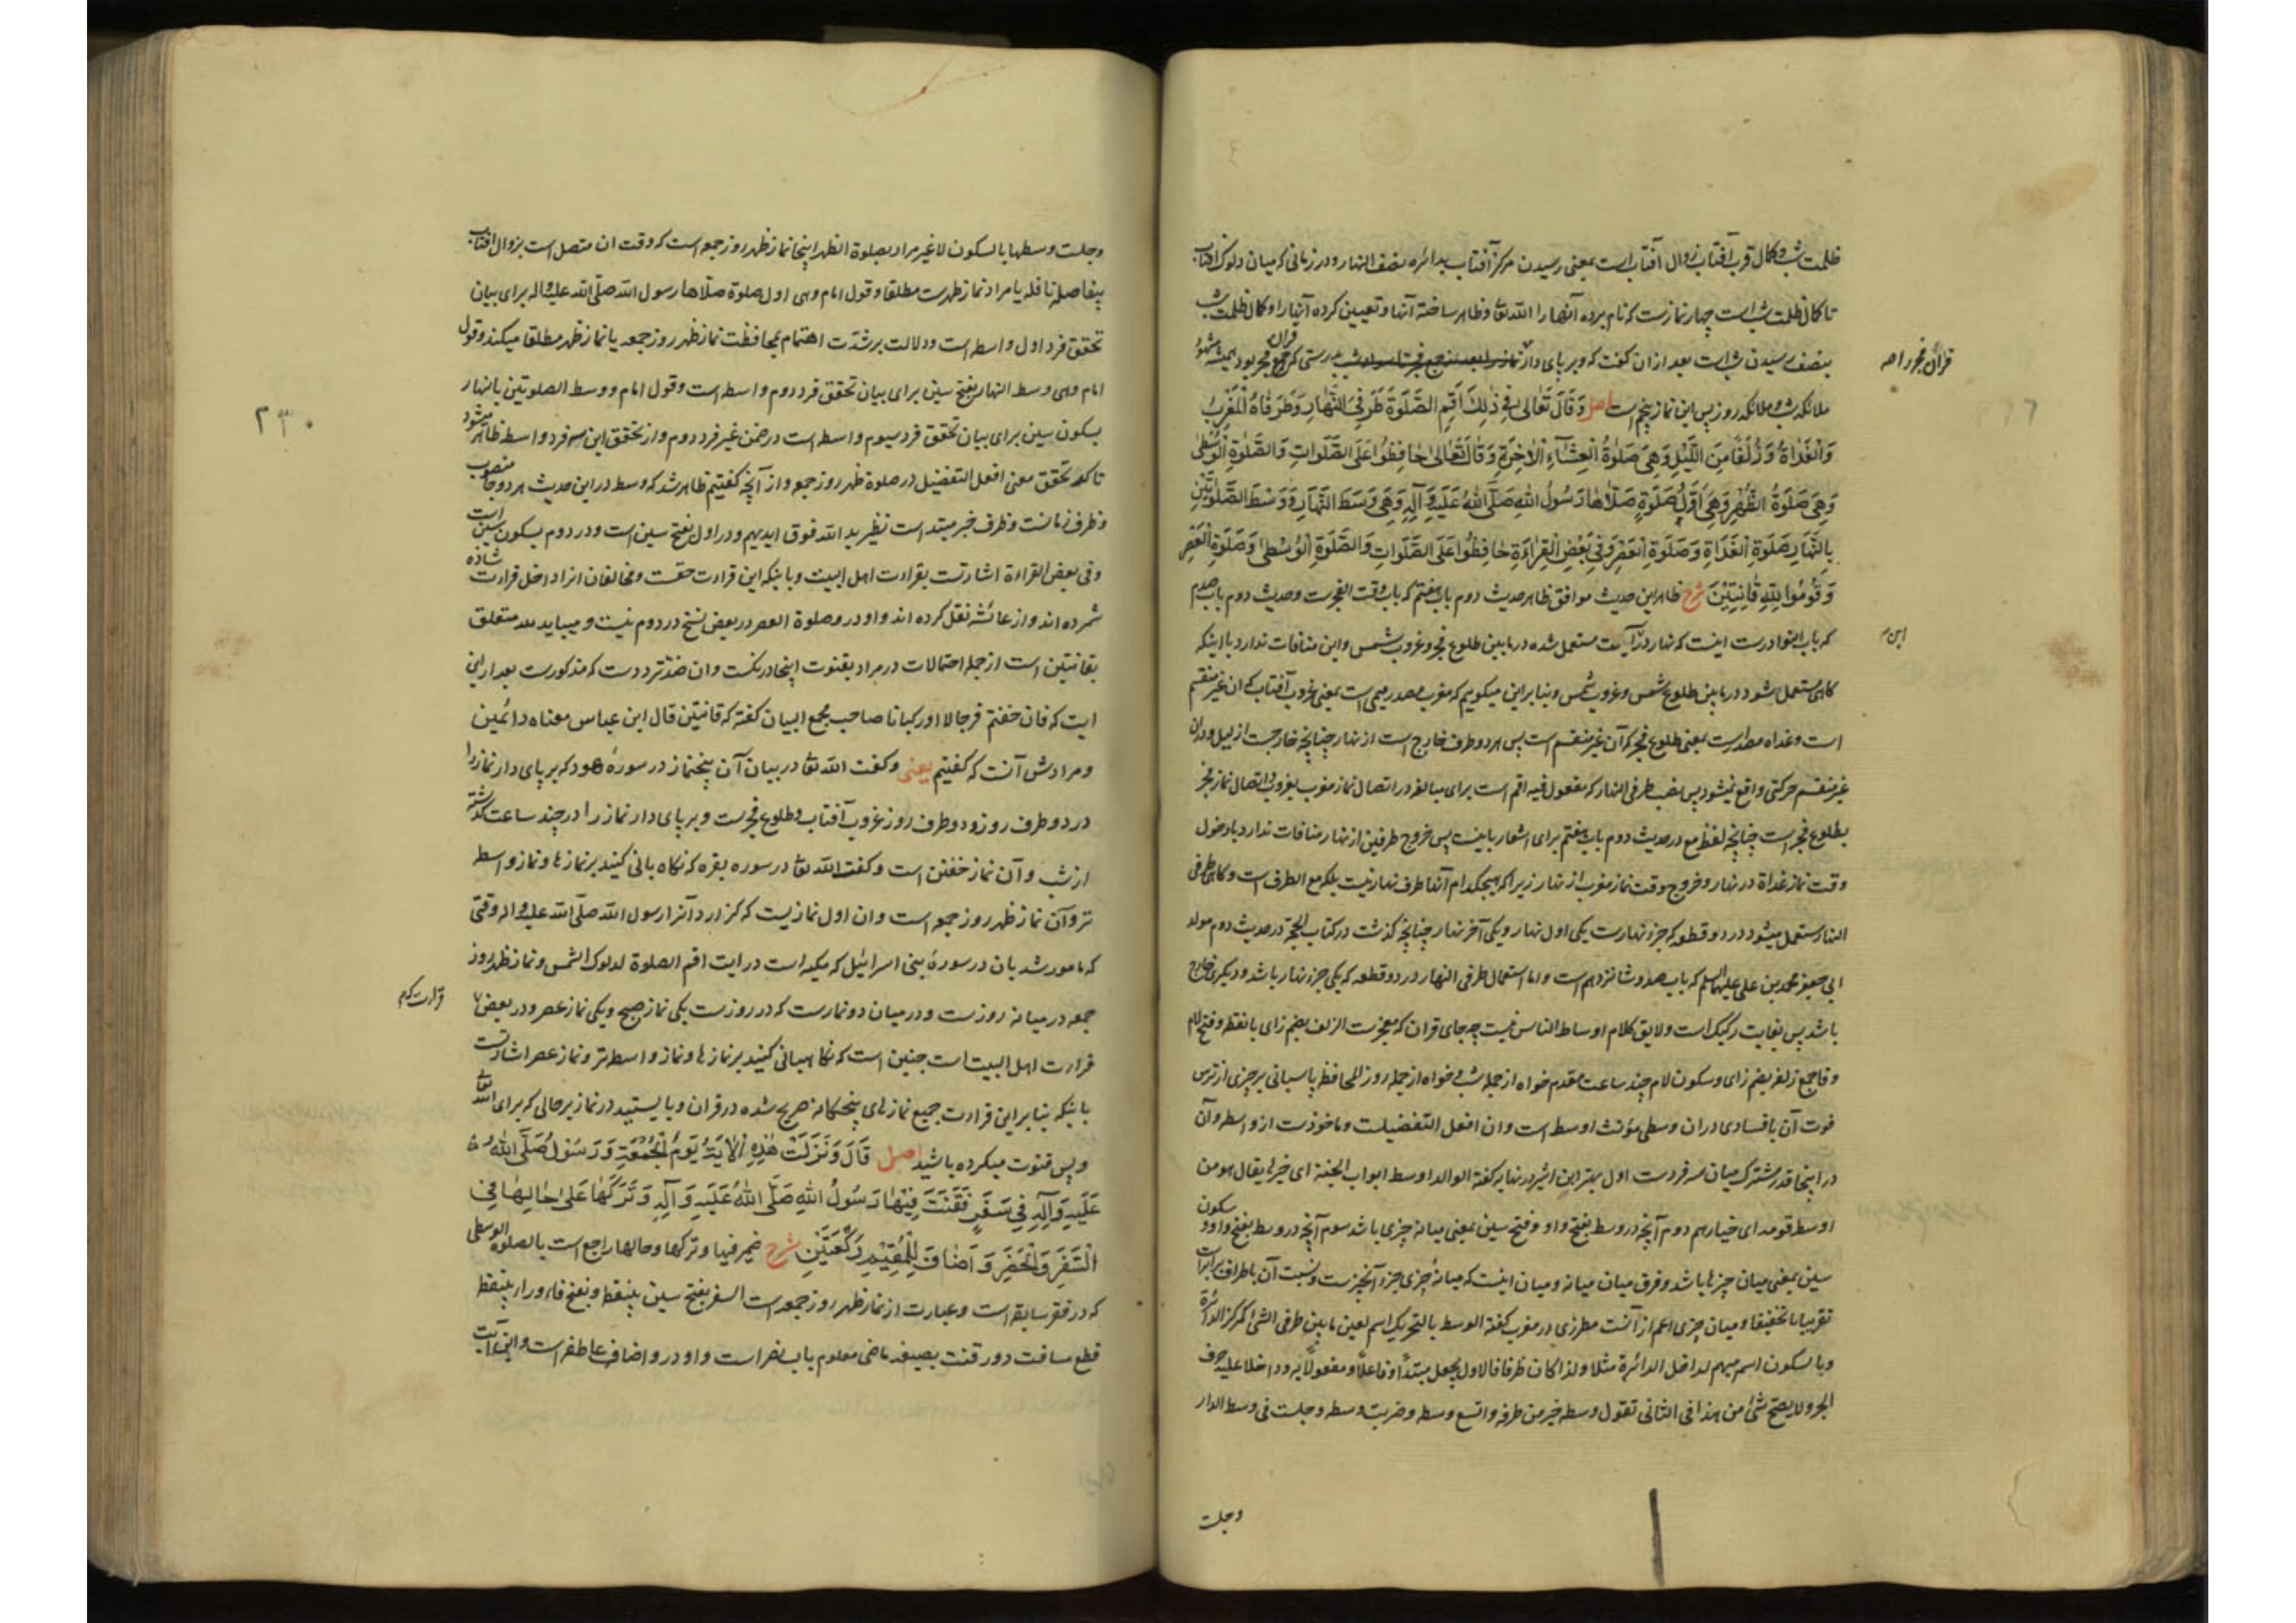 ظلمت شب و کمال قرب آفتاب زوال آفتاب است بمعنی رسیدن مرکز آفتاب بدائره نصف النهار و در زمانی که میان دلوک آفتاب
تا کمال ظلمت شب است چهار نمازست که نام برده آنها را الله تعالی و ظاهر ساخته آنها و تعیین کرده آنها را و کمال ظلمت شب
بنصف رسیدن شب است بعد ازان گفت که و بر پای دار قرآن فجر بدرستی که قرآن فجر بود همیشه مشهود
قرآن فجر را صح
ملائکه شب و ملائکه روز پس این نماز پنجم است اصل وَقَالَ تَعَالٰى فِي ذٰلِكَ أَقِمِ الصَّلٰوةَ طَرَفَيِ النَّهَارِ وَطَرَفَاهُ الْمَغْرِبُ
وَالْغَدَاةُ وَزُلَفًا مِنَ اللَّيْلِ وَهِيَ صَلٰوةُ الْعِشَاءِ الْاٰخِرَةِ وَقَالَ تَعَالٰى حَافِظُوا عَلَى الصَّلَوَاتِ وَالصَّلٰوةِ الْوُسْطٰى
وَهِيَ صَلٰوةُ الظُّهْرِ وَهِيَ أَوَّلُ صَلٰوةٍ صَلَّاهَا رَسُولُ اللهِ صَلَّى اللهُ عَلَيْهِ وَآلِهِ وَهِيَ وَسَطُ النَّهَارِ وَوَسْطَ الصَّلٰوتَيْنِ
بِالنَّهَارِ صَلٰوةِ الْغَدَاةِ وَصَلٰوةِ الْعَصْرِ وَفِي بَعْضِ الْقِرَاءَةِ حَافِظُوا عَلَى الصَّلَوَاتِ وَالصَّلٰوةِ الْوُسْطٰى وَصَلٰوةِ الْعَصْرِ
وَقُومُوا لِلّٰهِ قَانِتِينَ شرح ظاهر این حدیث موافق ظاهر حدیث دوم باب هفتم که باب وقت الفجرست و حدیث دوم باب صدم
که باب النوادرست اینست که نهار در آیت مستعمل شده در مابین طلوع فجر و غروب شمس و این منافات ندارد با اینکه
گاهی مستعمل شود در مابین طلوع شمس و غروب شمس و بنابراین میگوییم که مغرب مصدر میمی است بمعنی غروب آفتاب که آن غیر منقسم
است و غداه مصدرست بمعنی طلوع فجر که آن غیر منقسم است پس هر دو طرف خارج است از نهار چنانچه خارجست از لیل و دران
غیر منقسم حرکتی واقع نمیشود پس نصب طرفی النهار که مفعول فیه اقم است برای مبالغه در اتصال نماز مغرب بغروب و اتصال نماز فجر
بطلوع فجر است چنانچه لفظ مع در حدیث دوم باب هفتم برای اشعار باینست پس خروج طرفین از نهار منافات ندارد با دخول
وقت نماز غداة در نهار و خروج وقت نماز مغرب از نهار زیرا که هیچکدام آنها طرف نهار نیست بلکه مع الطرف است و گاهی طرفی
النهار مستعمل میشود در دو قطعه که جزء نهارست یکی اول نهار و یکی آخر نهار چنانچه گذشت در کتاب الحجة در حدیث دوم مولد
ابی جعفر محمد بن علی علیهما السلم که باب صد و شانزدهم است و اما استعمال طرفی النهار در دو قطعه که یکی جزء نهار باشد و دیگری خارج
باشد پس بغایت رکیک است و لایق کلام اوساط الناس نیست چه جای قران که معجزست الزلف بضم زای با نقطه و فتح لام
و فا جمع زلفه بضم زای و سکون لام چند ساعت مقدم خواه از جمله شب و خواه از جمله روز المحافظه پاسبانی بر چیزی از ترس
فوت آن یا فسادی دران وسطی مؤنث اوسط است و ان افعل التفضیلست و ماخوذست از واسط و آن
در اینجا قدر مشترک میان سه فردست اول بهتر ابن اثیر در نهایه گفته الوالد اوسط ابواب الجنة ای خیرها یقال هو من
اوسط قومه ای خیارهم دوم آنچه در وسط بفتح واو و فتح سین بمعنی میانه چیزی باشد سوم آنچه در وسط بفتح واو و سکون
سین بمعنی میان چیزها باشد و فرق میان میانه و میان اینست که میانهٔ چیزی جزء آنچیزست و نسبت آن باطراف برابرست
تقریبا یا تحقیقا و میان چیزی اعم از آنست مطرزی در مغرب گفته الوسط بالتحریک اسم لعین مابین طرفی الشئ کمرکز الدائرة
وبالسکون اسم مبهم لداخل الدائرة مثلا ولذا کان ظرفا فالاول یجعل مبتدأ وفاعلا ومفعولا به وداخلا علیه حرف
الجر ولا یصح شئ من هذا فی الثانی تقول وسطه خیر من طرفه واتسع وسطه وضربت وسطه وجلست فی وسط الدار
وجلست
وجلست وسطها بالسکون لا غیر مراد بصلوة الظهر اینجا نماز ظهر روز جمعه است که وقت ان متصل است بزوال آفتاب
بیفاصله نافله یا مراد نماز ظهرست مطلقا و قول امام وهی اول صلوة صلاها رسول الله صلی الله علیه واله برای بیان
تحقق فرد اول واسط است و دلالت بر شدت اهتمام بمحافظت نماز ظهر روز جمعه یا نماز ظهر مطلقا میکند و قول
امام وهی وسط النهار بفتح سین برای بیان تحقق فرد دوم واسط است و قول امام ووسط الصلوتین بالنهار
بسکون سین برای بیان تحقق فرد سیوم واسط است در ضمن غیر فرد دوم و از تحقق این سه فرد واسط ظاهر میشود
تاکد تحقق معنی افعل التفضیل در صلوة ظهر روز جمعه و از آنچه گفتیم ظاهر شد که وسط در این حدیث هر دو جا منصوب
و ظرف زمانست و ظرف خبر مبتدا است نظیر ید الله فوق ایدیهم و در اول بفتح سین است و در دوم بسکون سین است
وفی بعض القراءة اشارتست بقراءت اهل البیت و باینکه این قراءت حقست و مخالفان انرا داخل قراءت شاذه
شمرده اند و از عائشه نقل کرده اند و واو در وصلوة العصر در بعض نسخ در دوم نیست و میباید لله متعلق
بقانتین است از جمله احتمالات در مراد بقنوت اینجا درنگست و ان ضد ترددست که مذکورست بعد از این
ایت که فان خفتم فرجالا او رکبانا صاحب مجمع البیان گفته که قانتین قال ابن عباس معناه دائمین
و مرادش آنست که گفتیم یعنی و گفت الله تعالی در بیان آن پنجنماز در سورهٔ هود که بر پای دار نماز را
در دو طرف روز و دو طرف روز غروب آفتاب و طلوع فجرست و بر پای دار نماز را در چند ساعت گذشته
از شب و آن نماز خفتن است و گفت الله تعالی در سوره بقره که نگاه بانی کنید بر نمازها و نماز واسط
تر و آن نماز ظهر روز جمعه است و ان اول نمازیست که گزارد آنرا رسول الله صلی الله علیه واله وقتی
که مامور شد بان در سورهٔ بنی اسرائیل که مکیه است در ایت اقم الصلوة لدلوک الشمس و نماز ظهر روز
جمعه در میانه روزست و در میان دو نمازست که در روزست یکی نماز صبح و یکی نماز عصر و در بعض
قراءت که
قراءت اهل البیت است چنین است که نگاهبانی کنید بر نمازها و نماز واسط تر و نماز عصر اشارتست
باینکه بنابراین قراءت جمیع نمازهای پنجگانه صریح شده در قران و بایستید در نماز برحالی که برای الله تعالی
و پس قنوت میکرده باشید اصل قَالَ وَنَزَلَتْ هٰذِهِ الْاٰيَةُ يَوْمَ الْجُمُعَةِ وَرَسُولُ اللهِ صَلَّى اللهُ
عَلَيْهِ وَآلِهِ فِي سَفَرٍ فَقَنَتَ فِيهَا رَسُولُ اللهِ صَلَّى اللهُ عَلَيْهِ وَآلِهِ وَتَرَكَهَا عَلٰى حَالِهَا فِي
السَّفَرِ وَالْحَضَرِ وَأَضَافَ لِلْمُقِيمِ رَكْعَتَيْنِ شرح ضمیر فیها و ترکها و حالها راجع است بالصلوة الوسطی
که در فقره سابقه است و عبارت از نماز ظهر روز جمعه است السفر بفتح سین بینقطه و بفتح فاء و راء بینقطه
قطع مسافت دور قنت بصیغه ماضی معلوم باب نصر است و واو در و اضاف عاطفه است